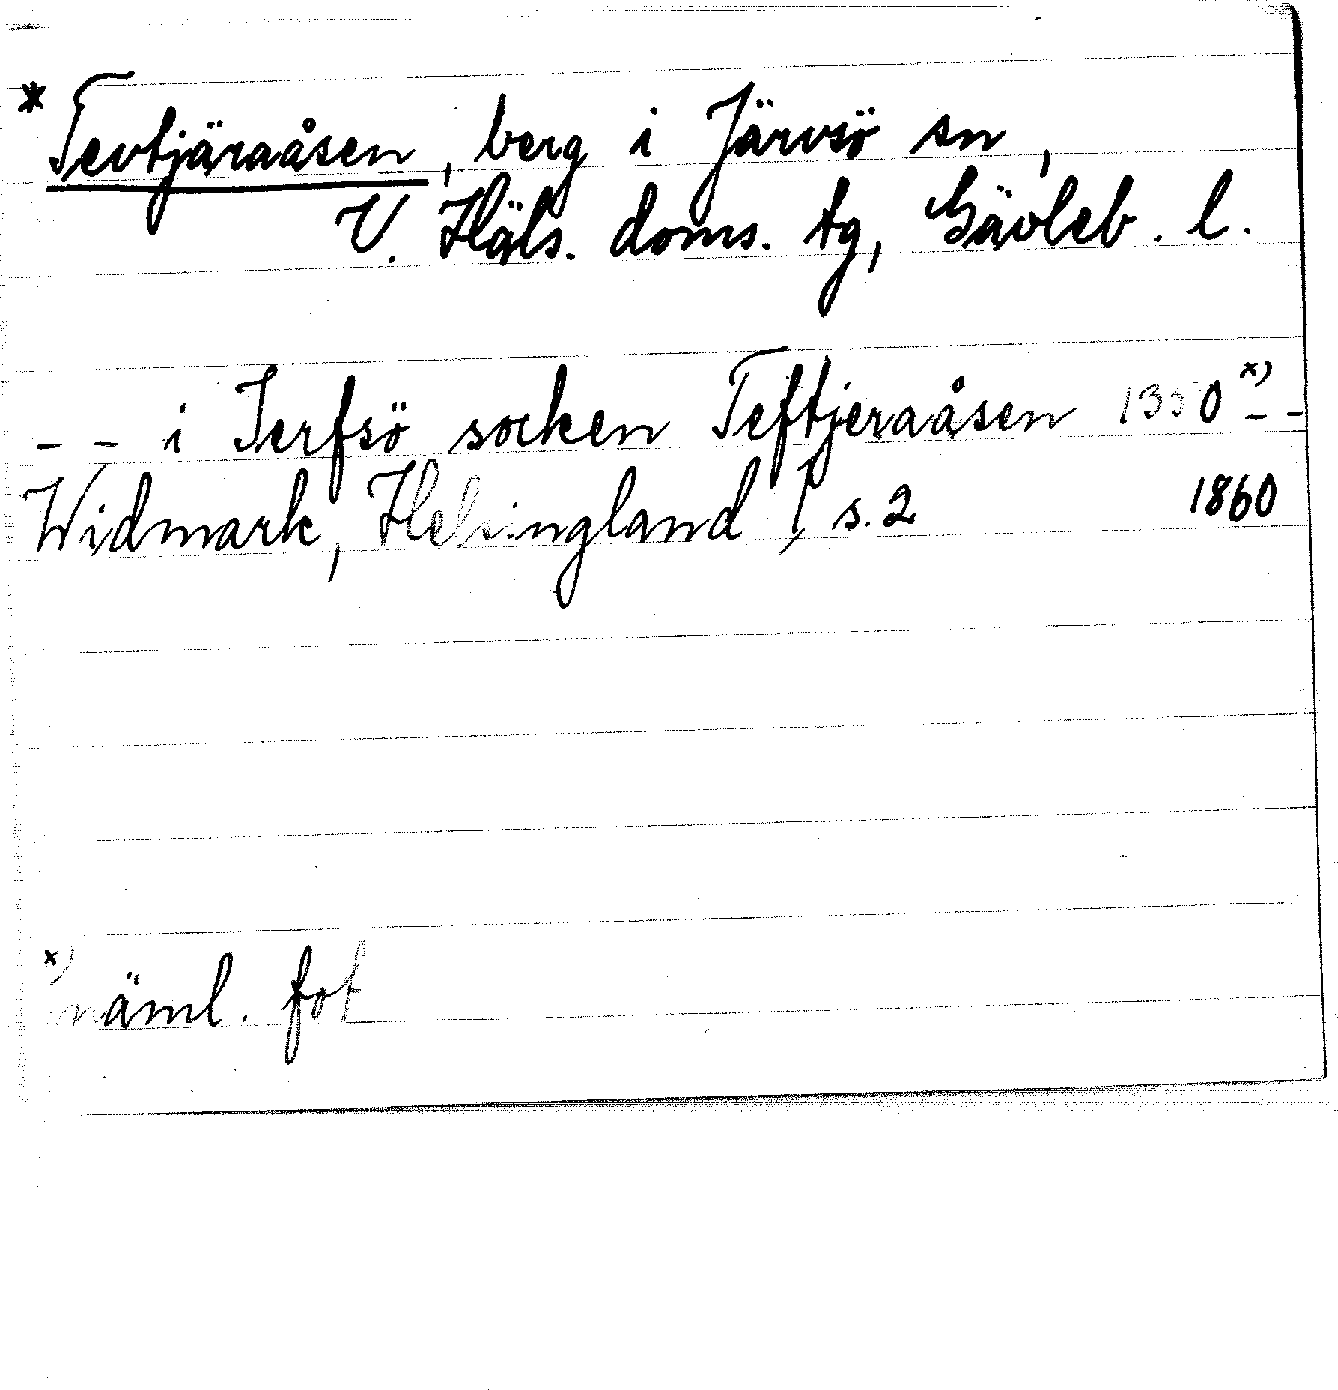 * Tevtjäraåsen, berg i Järvsö sn,
V. Häls. doms. tg, Gävleb. l.
– – i Jerfsö socken Teftjeraåsen 1350 x) – –
Widmark, Helsingland I, s. 2 1860
x) näml. fot